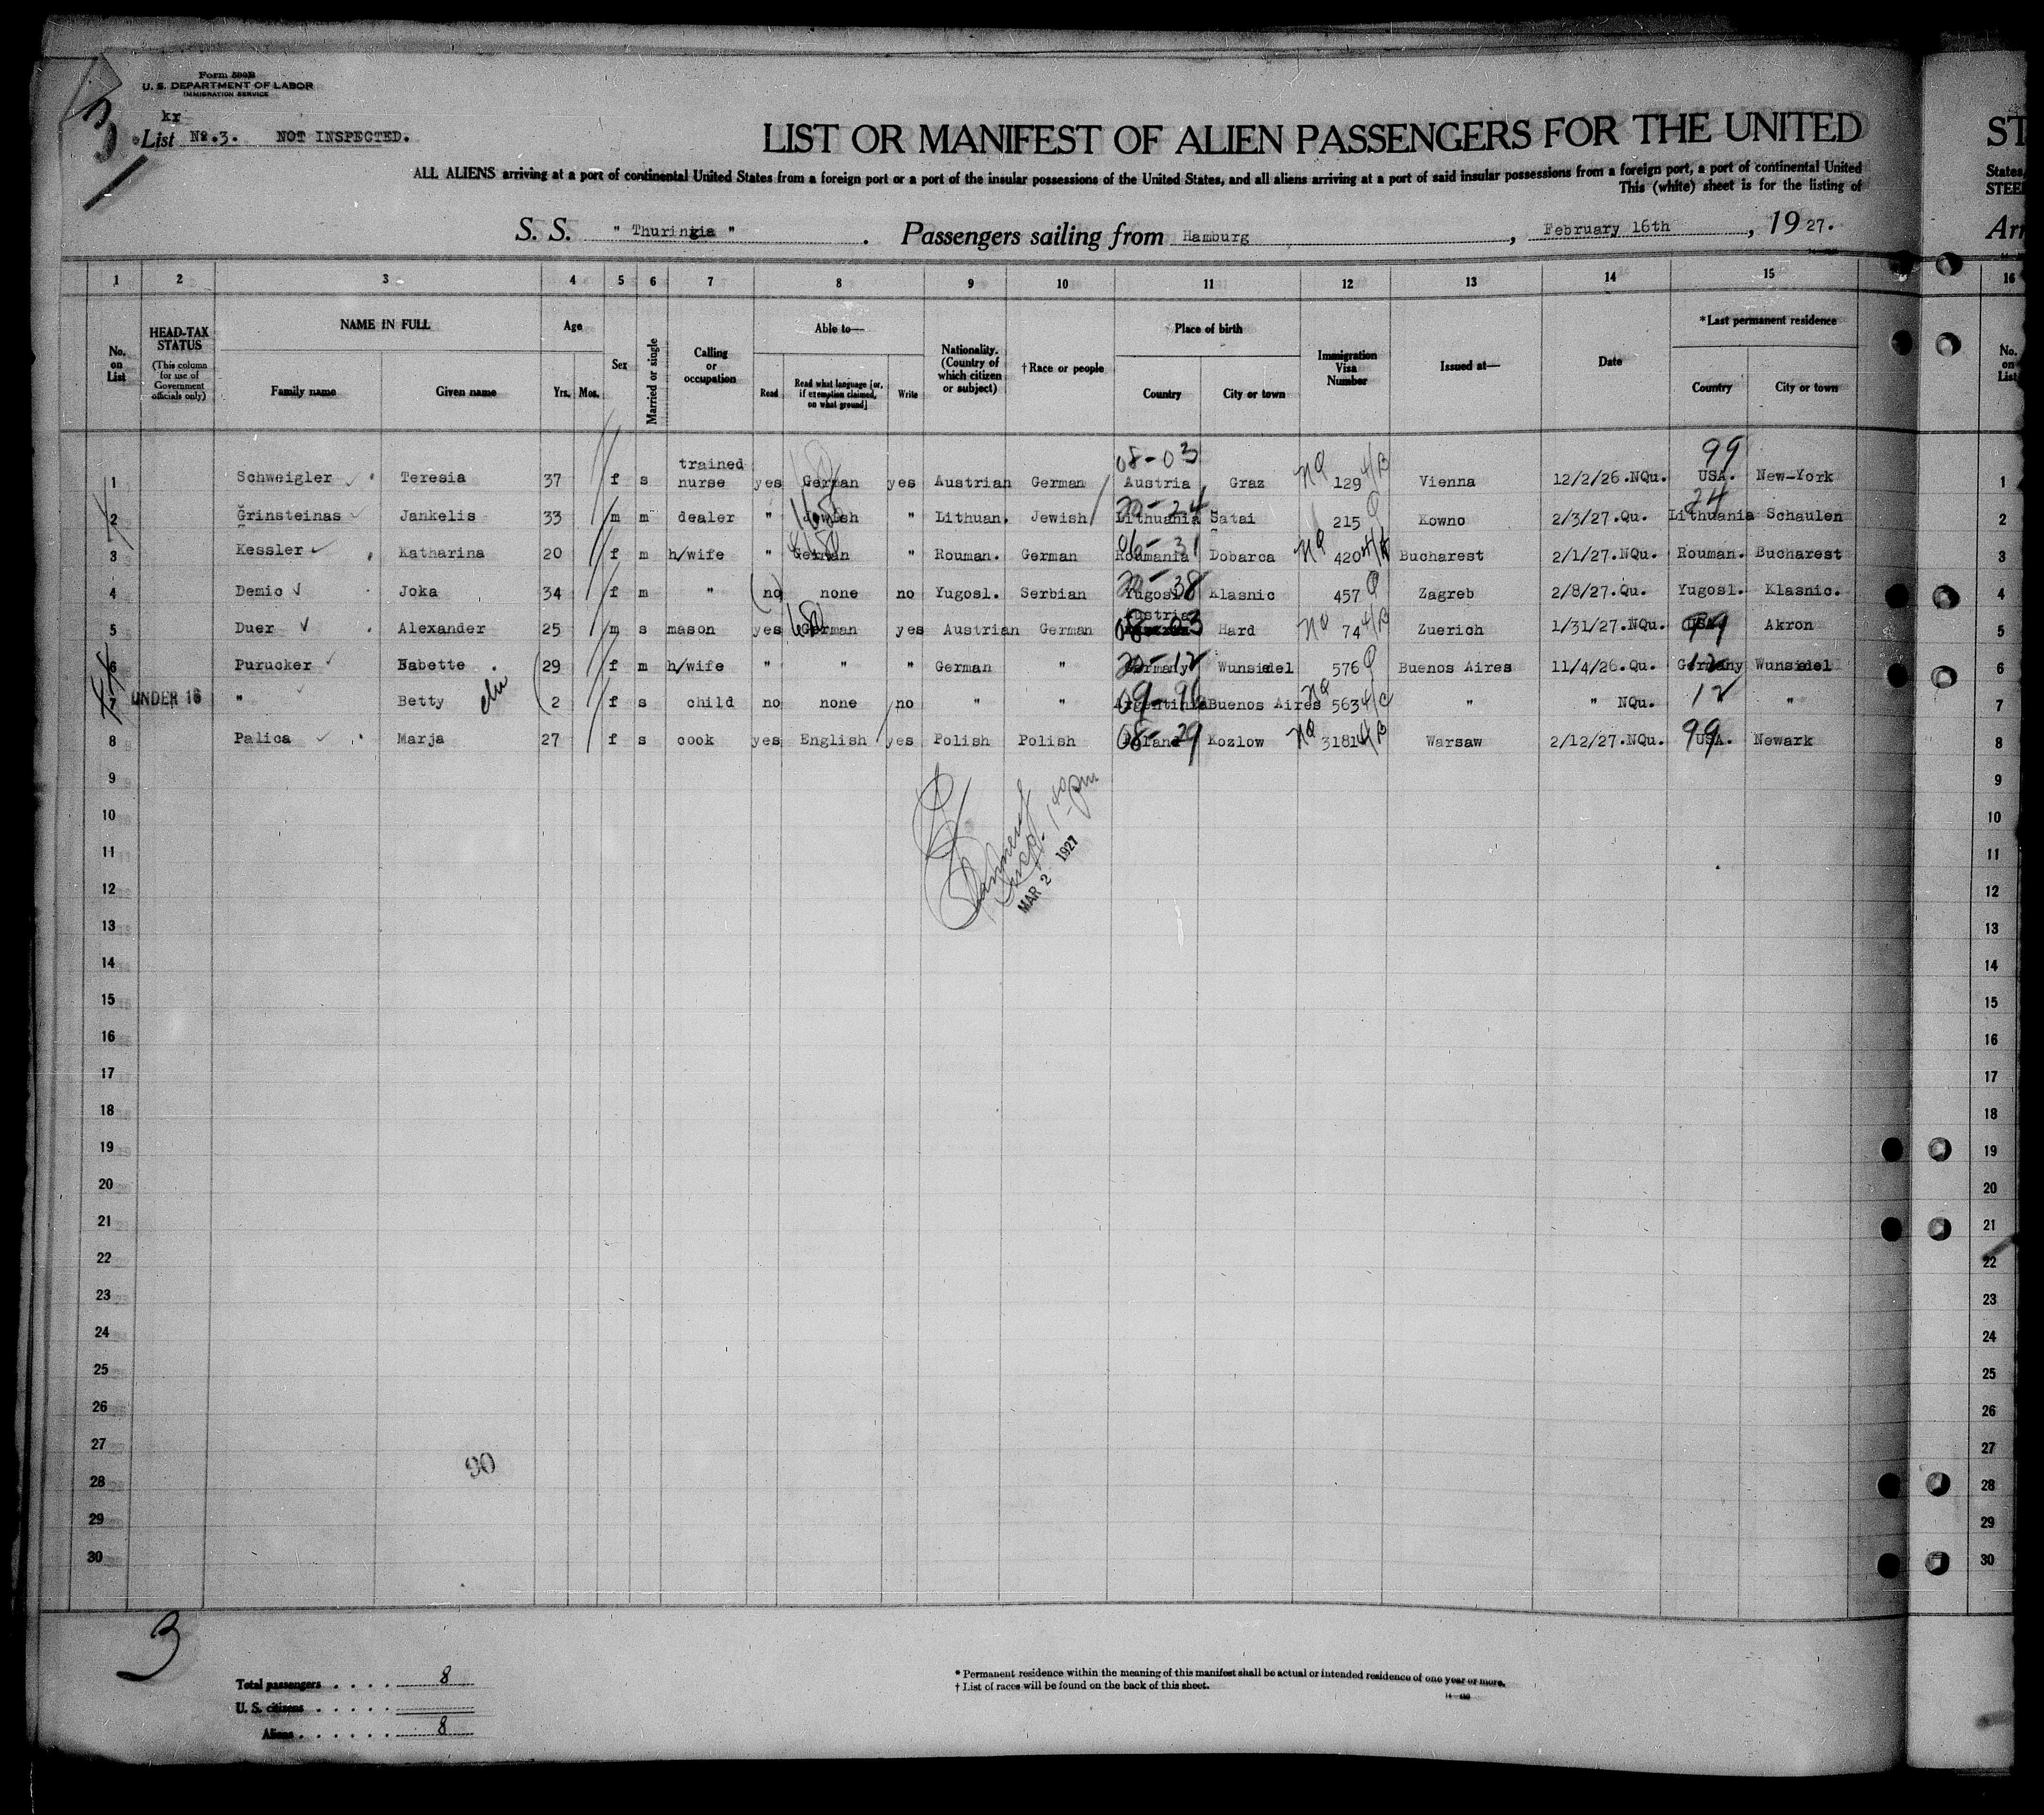 Form 500B
U. S. DEPARTMENT OF LABOR
IMMIGRATION SERVICE
3
kr
List No.3. NOT INSPECTED.
LIST OR MANIFEST OF ALIEN PASSENGERS FOR THE UNITED
ST
ALL ALIENS arriving at a port of continental United States from a foreign port or a port of the insular possessions of the United States, and all aliens arriving at a port of said insular possessions from a foreign port, a port of continental United
States,
This (white) sheet is for the listing of
STEE
S. S. " Thuringia " . Passengers sailing from Hamburg , February 16th , 19 27.
Arr
1 2 3 4 5 6 7 8 9 10 11 12 13 14 15 16
No. on List
HEAD-TAX STATUS
(This column for use of Government officials only)
NAME IN FULL
Family name Given name
Age
Yrs. Mos.
Sex
Married or single
Calling or occupation
Able to—
Read Read what language [or, if exemption claimed, on what ground] Write
Nationality. (Country of which citizen or subject)
† Race or people
Place of birth
Country City or town
Immigration Visa Number
Issued at—
Date
*Last permanent residence
Country City or town
No. on List
08-03 99
1 Schweigler Teresia 37 f s trained nurse yes German yes Austrian German Austria Graz 129 4/B Vienna 12/2/26.NQu. USA. New-York 1
24
2 Grinsteinas Jankelis 33 m m dealer " Jewish " Lithuan. Jewish Lithuania Satai 215 Q Kowno 2/3/27.Qu. Lithuania Schaulen 2
3 Kessler Katharina 20 f m h/wife " German " Rouman. German Roumania Dobarca 420 Bucharest 2/1/27.NQu. Rouman. Bucharest 3
4 Demic Joka 34 f m " no none no Yugosl. Serbian Yugosl. Klasnic 457 Q Zagreb 2/8/27.Qu. Yugosl. Klasnic. 4
Austria
5 Duer Alexander 25 m s mason yes German yes Austrian German 08-03 Hard 74 4/B Zuerich 1/31/27.NQu. 99 Akron 5
6 Purucker Babette 29 f m h/wife " " " German " Germany Wunsiedel 576 Q Buenos Aires 11/4/26.Qu. Germany Wunsiedel 6
7 UNDER 16 " Betty 2 f s child no none no " " Argentinia Buenos Aires 563 4/C " " NQu. 12 " 7
8 Palica Marja 27 f s cook yes English yes Polish Polish Poland Kozlow 3181 4/B Warsaw 2/12/27.NQu. USA. 99 Newark 8
9 9
10 10
11 11
MAR 2 1927
12 12
13 13
14 14
15 15
16 16
17 17
18 18
19 19
20 20
21 21
22 22
23 23
24 24
25 25
26 26
27 27
90
28 28
29 29
30 30
3
Total passengers . . . . 8
U. S. citizens . . . . .
Aliens . . . . . . 8
* Permanent residence within the meaning of this manifest shall be actual or intended residence of one year or more.
† List of races will be found on the back of this sheet.